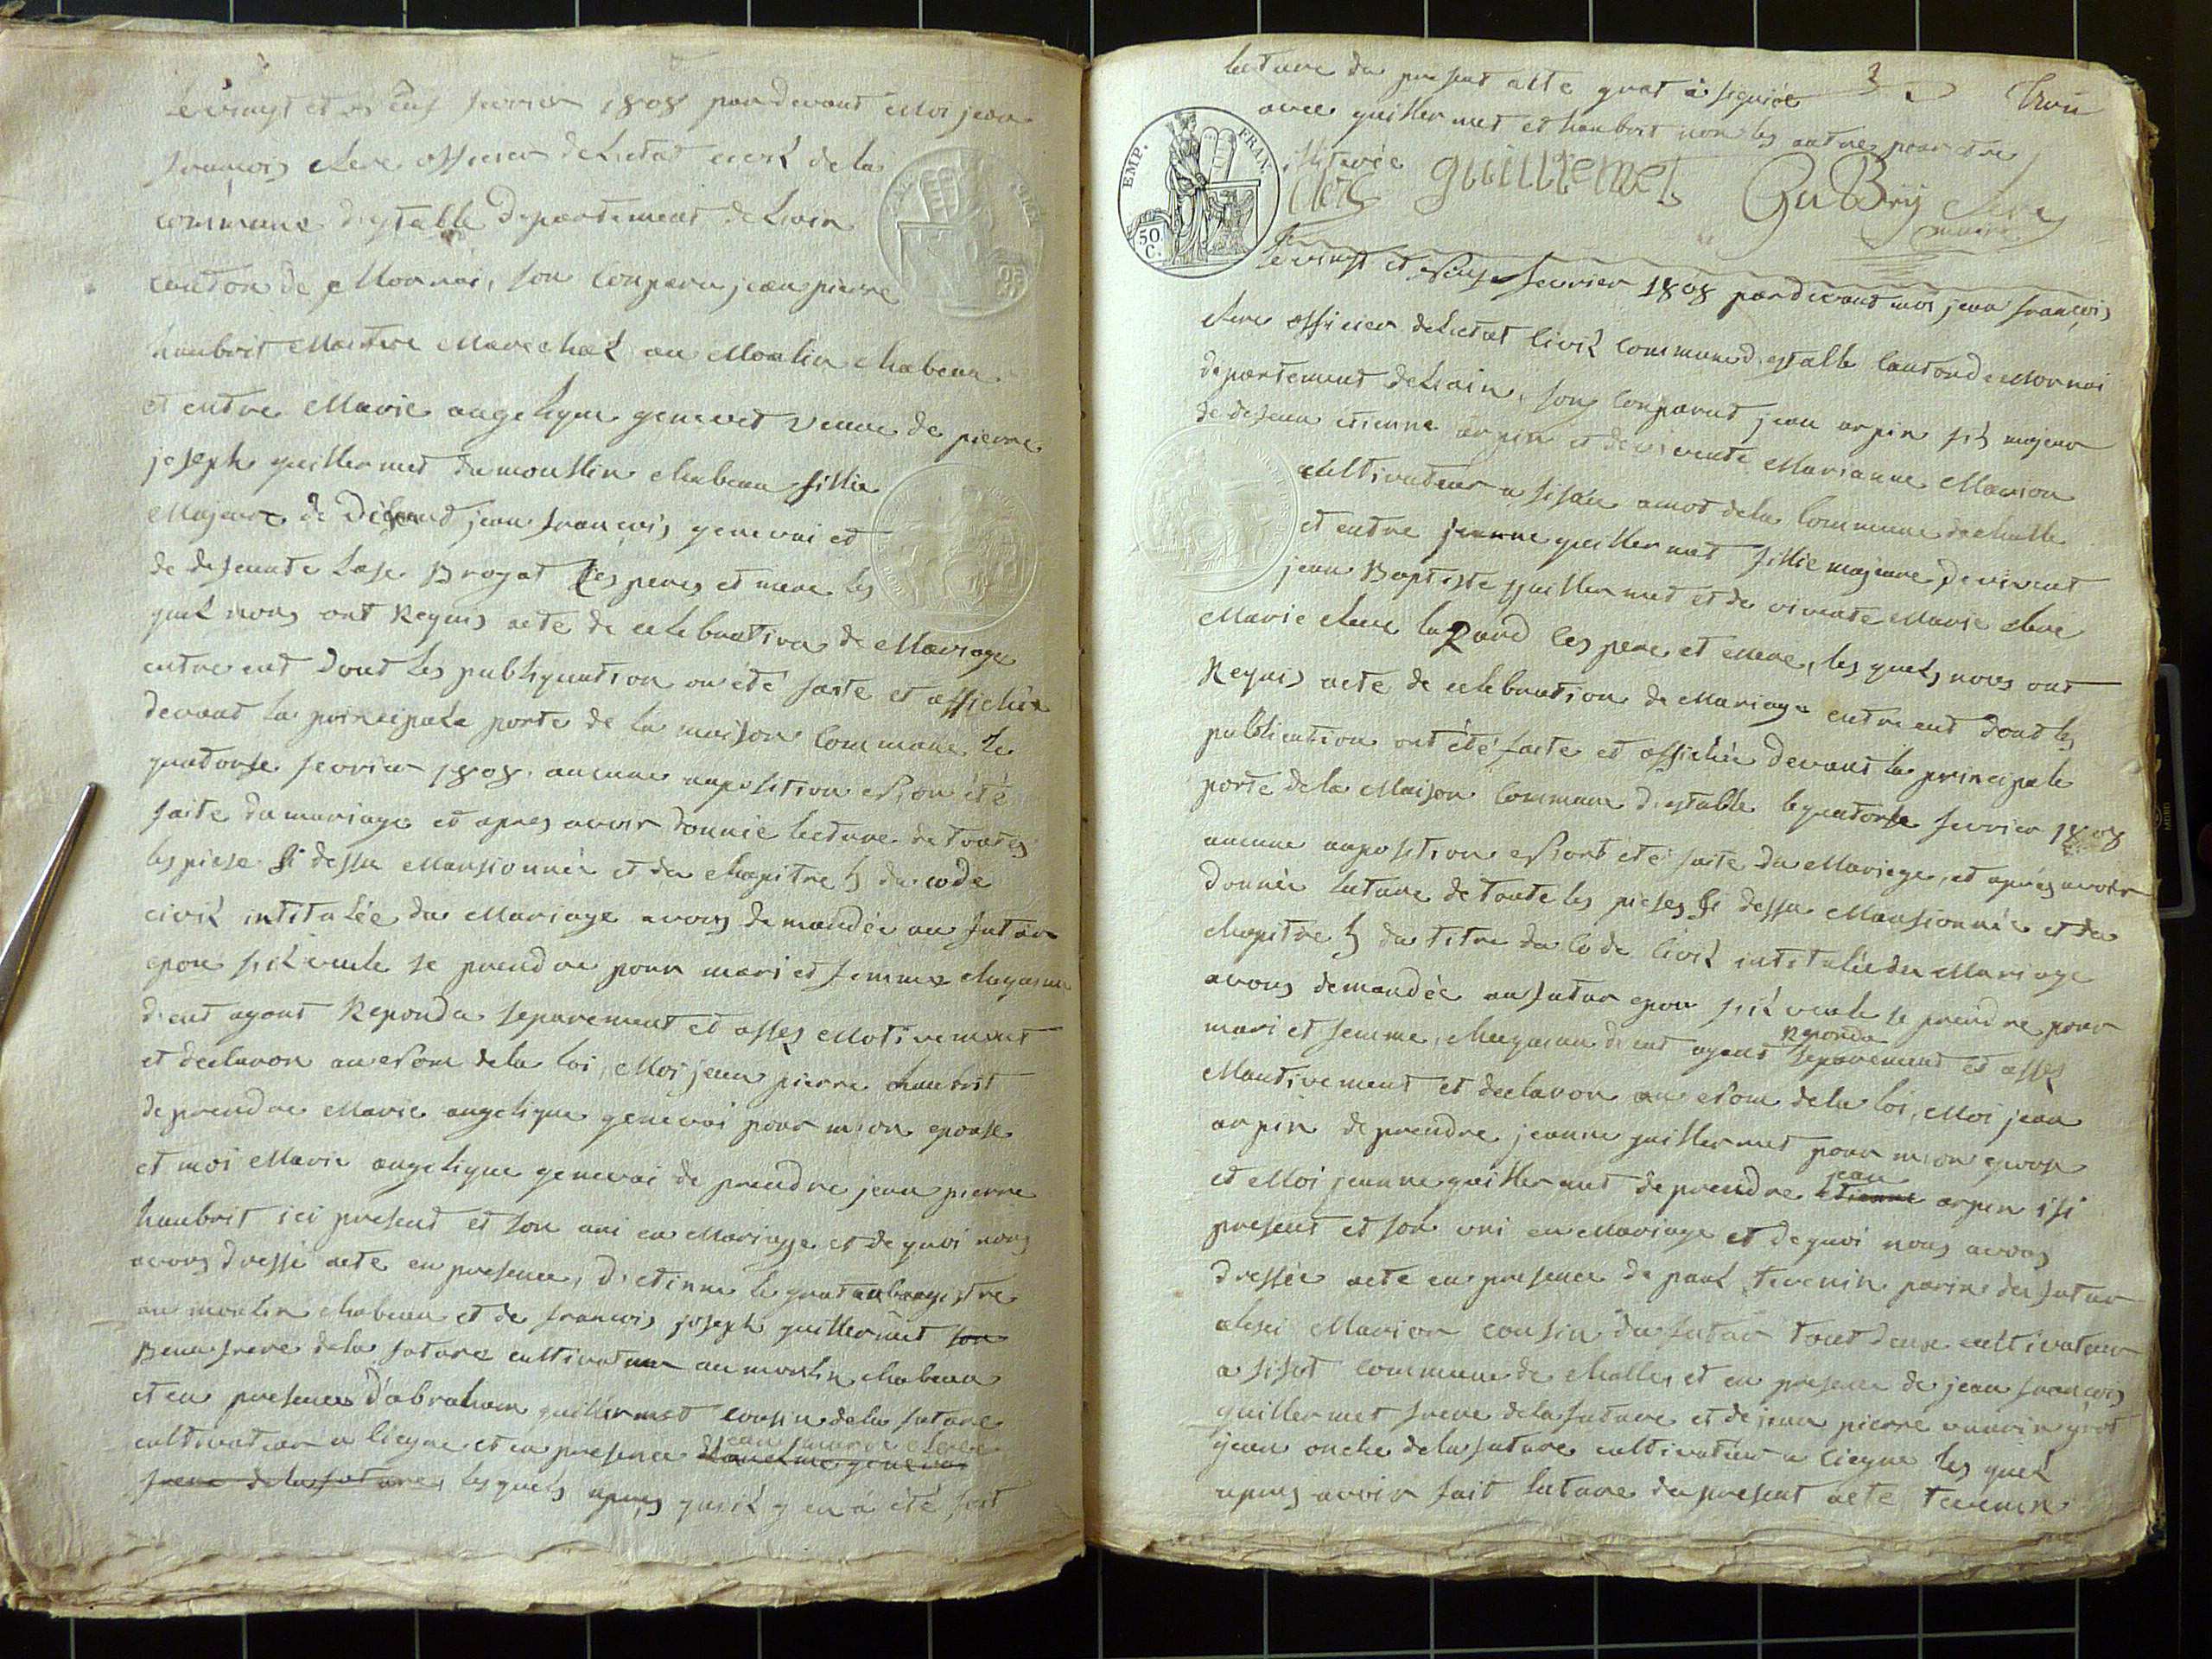 le vingt et neuf fevrier 1808 pardevant Moi jean
francois clerc officier de letat civil de la
commune destable Departement de Lain
canton de Mornai, son conparu jean pierre
haubrit Maitre Marechal au Moulin chabeau
et entre Marie angelique genevet veuve de pierre
joseph guillermet du moullin chabeau fillie
Majeure de Défeunt jean francois genevai et
de defeunte Brogat les peres et mere les
quel nous ont Requis acte de celebration de Mariage
entre eut Dont les publiquation on été faite et affichée
devant la principale porte de la maison Commune le
quatorse fevrier 1808. aucune auposition Nion été
faite du mariage et apres avoir donnée lecture de toutes
les piese si dessu Mansionnée et du chapitre 5 du code
civil intitulée du Mariage avons demandée au futur
epou sil veule se prendre pour mari et femme chaqunne
deut ayant Repondu separement et asses Motivement
et declaron au Nom de la loi, Moi jean pierre haubrit
de prendre Marie angelique genevai pour mon epouse
et moi Marie angelique genevai de prendre jean pierre
haubrit ici present et son uni en Mariage et de quoi nous
avons dressé acte en presence, d'etienne aubergistre
au moulin chabeau et de francois joseph guillermet son
Beau frere de la future cultivateur au moulin chabeau
et en presence d'abraham guillermet cousin de la future
cultivateur a liegne et en presence
frere de la future, les quels apres quoil y en a été fait
3 trois
lecture du present acte quat a signée
avec guillermet et haubrit non les autres pour etre
illiterée
EMP. FRAN.
50 C.
Clerc guillermet Clerc
maire
le vingt et Neuf fevrier 1808 pardevant moi jean francois
clerc officier de letat civil commune destable Canton de Mornai
departement de Lain, son conparut jean arpin fils majeur
de defeun etienne arpin et de vivente Marianne Marion
cultivateur a sisau amot de la Commune de challe
et entre jeanne guillermet fillie majeure de vivent
jean Baptiste guillermet et de vivente Marie clerc
Marie clerc les pere et Mere, les quels nous ont
Requis acte de celebration de Mariage entre eut dont les
publication ont été faite et affichée devant la principale
porte de la Maison Commune destable le quatorse fevrier 1808
aucune auposition Niont été faite du Mariage, et apres avoir
donnée lecture de toute les pieses si dessu Mansionnée et du
chapitre 5 du titre du Code Civil intitulée du Mariage
avons demandée au futur epou sil veule se prendre pour
mari et femme, chaqunne deut ayant Repondu separement et asses
Mautivement et declaron au Nom de la loi, Moi jean
arpin de prendre jeanne guillermet pour mon epouse
et Moi jeanne guillermet de prendre etienne jean arpin isi
present et son uni en Mariage et de quoi nous avons
dressée acte en presence de paul tevenin parin du futur
alexi Marion cousin du futur tout deux cultivateur
a sisot commune de challe, et en presence de jean francois
guillermet frere de la future et de jean pierre
jean oncle de la future cultivateur a liegne les quel
apres avoir fait lecture du present acte tevenin